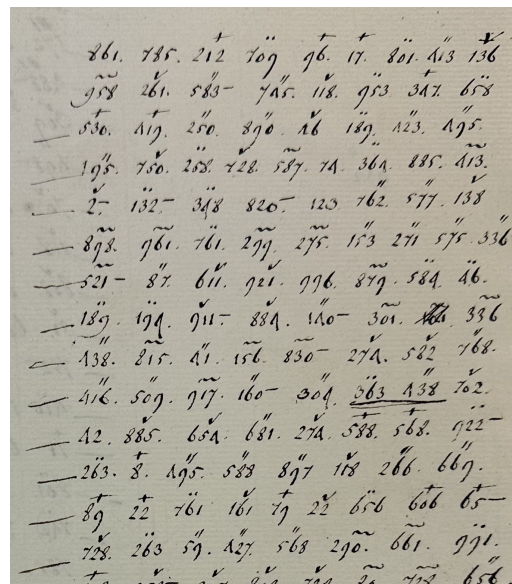 861. 785. 212 709 96. 17. 801. 413 136
958 261. 583- 745. 118. 953 347. 658
530. 419. 250. 890. 46 189. 423. 495.
195. 750. 258. 728. 587. 74. 364. 885. 413.
2- 132- 348 820- 123 762. 577. 138
898. 961. 761. 299 275. 153 271 575. 336
521- 87. 611. 921. 996. 879. 584. 46.
189. 194. 911- 884. 140- 301. 336
438. 815. 41. 156. 830- 274. 582 768.
416. 509. 917. 160- 304. 363 438 702.
42. 885. 654. 681. 274. 588. 568. 922-
263. 8. 495. 588 897 118 266. 669.
89 22 761 161 79 22 656 606 65-
728. 263 59. 427. 568 290. 661. 991.